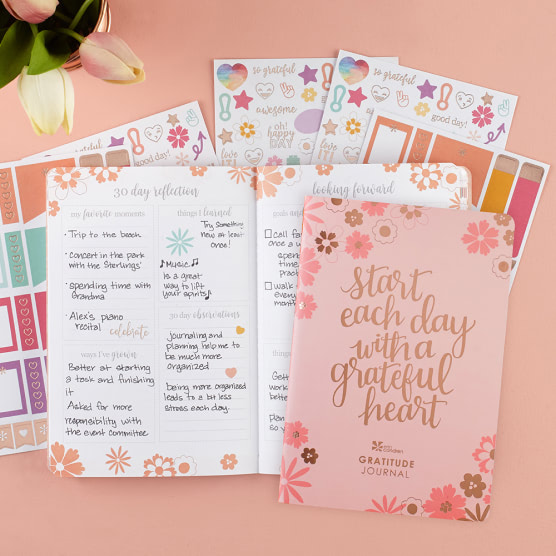 so grateful
awesome
oh
happy
DAY
so grateful
good day!
good day!
30 day reflection
my favorite moments
• Trip to the beach
• Concert in the park
with the Sterlings'
• spending time with
Grandma
• Alex's piano
recital
celebrate
ways I've grown
Better at starting
a task and finishing
it
Asked for more
responsibility with
the event committee
things I learned
Try something
new at least
once!
Music
is a great
way to lift
your spirits
30 day observations
journaling and
planning help me to
be much more
organized
being more organized
leads to a bit less
stress each day.
looking forward
goals and
call
once a
spending
time
walk
every
things
Getting
work
plan
so
start
each day
with a
grateful
heart
erin condren
GRATITUDE
JOURNAL